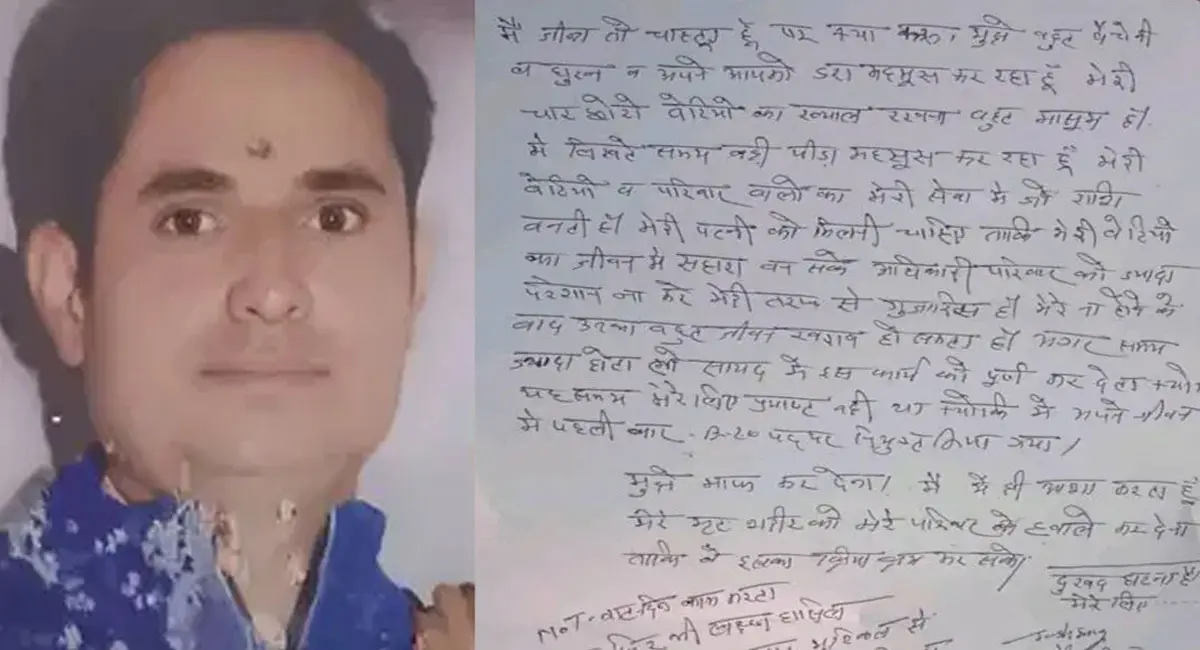 मै जीना तो चाहता हूँ पर क्या करू। मुझे बहुत बैचेनी
व घुटन व अपने आपको डरा महसूस कर रहा हूँ मेरी
चार छोटी बेटियो का ख्याल रखना बहुत मासूम हॉ.
मे लिखते समय बडी पीडा महसूस कर रहा हूँ मेरी
बेटियो व परिवार वालो का मेरी सेवा मे जो राशी
बनती हॉ मेरी पत्नी को मिलनी चाहिए ताकि मेरी बेटियो
का जीवन मे सहारा बन सके अधिकारी परिवार को ज्यादा
परेशान ना करे मेरी तरफ से गुजारिस हॉ मेरे ना होने के
बाद उनका बहुत जीवन खराब हो सकता हॉ अगर समय
ज्यादा होता तो सायद मै इस कार्य को पूर्ण कर देता
यह समय मेरे लिए प्रयाप्त नही था क्योकि मै अपने जीवन
मे पहली बार पद पर नियुक्त किया गया।
मुझे माफ कर देना। मै ये ही आशा करता हूँ
मेरे मृत शरीर को मेरे परिवार के हवाले कर देना
ताकि वे इसका क्रिया क्रम कर सके।
दुखद घटना है
मेरे लिए
रात-दिन काम करता